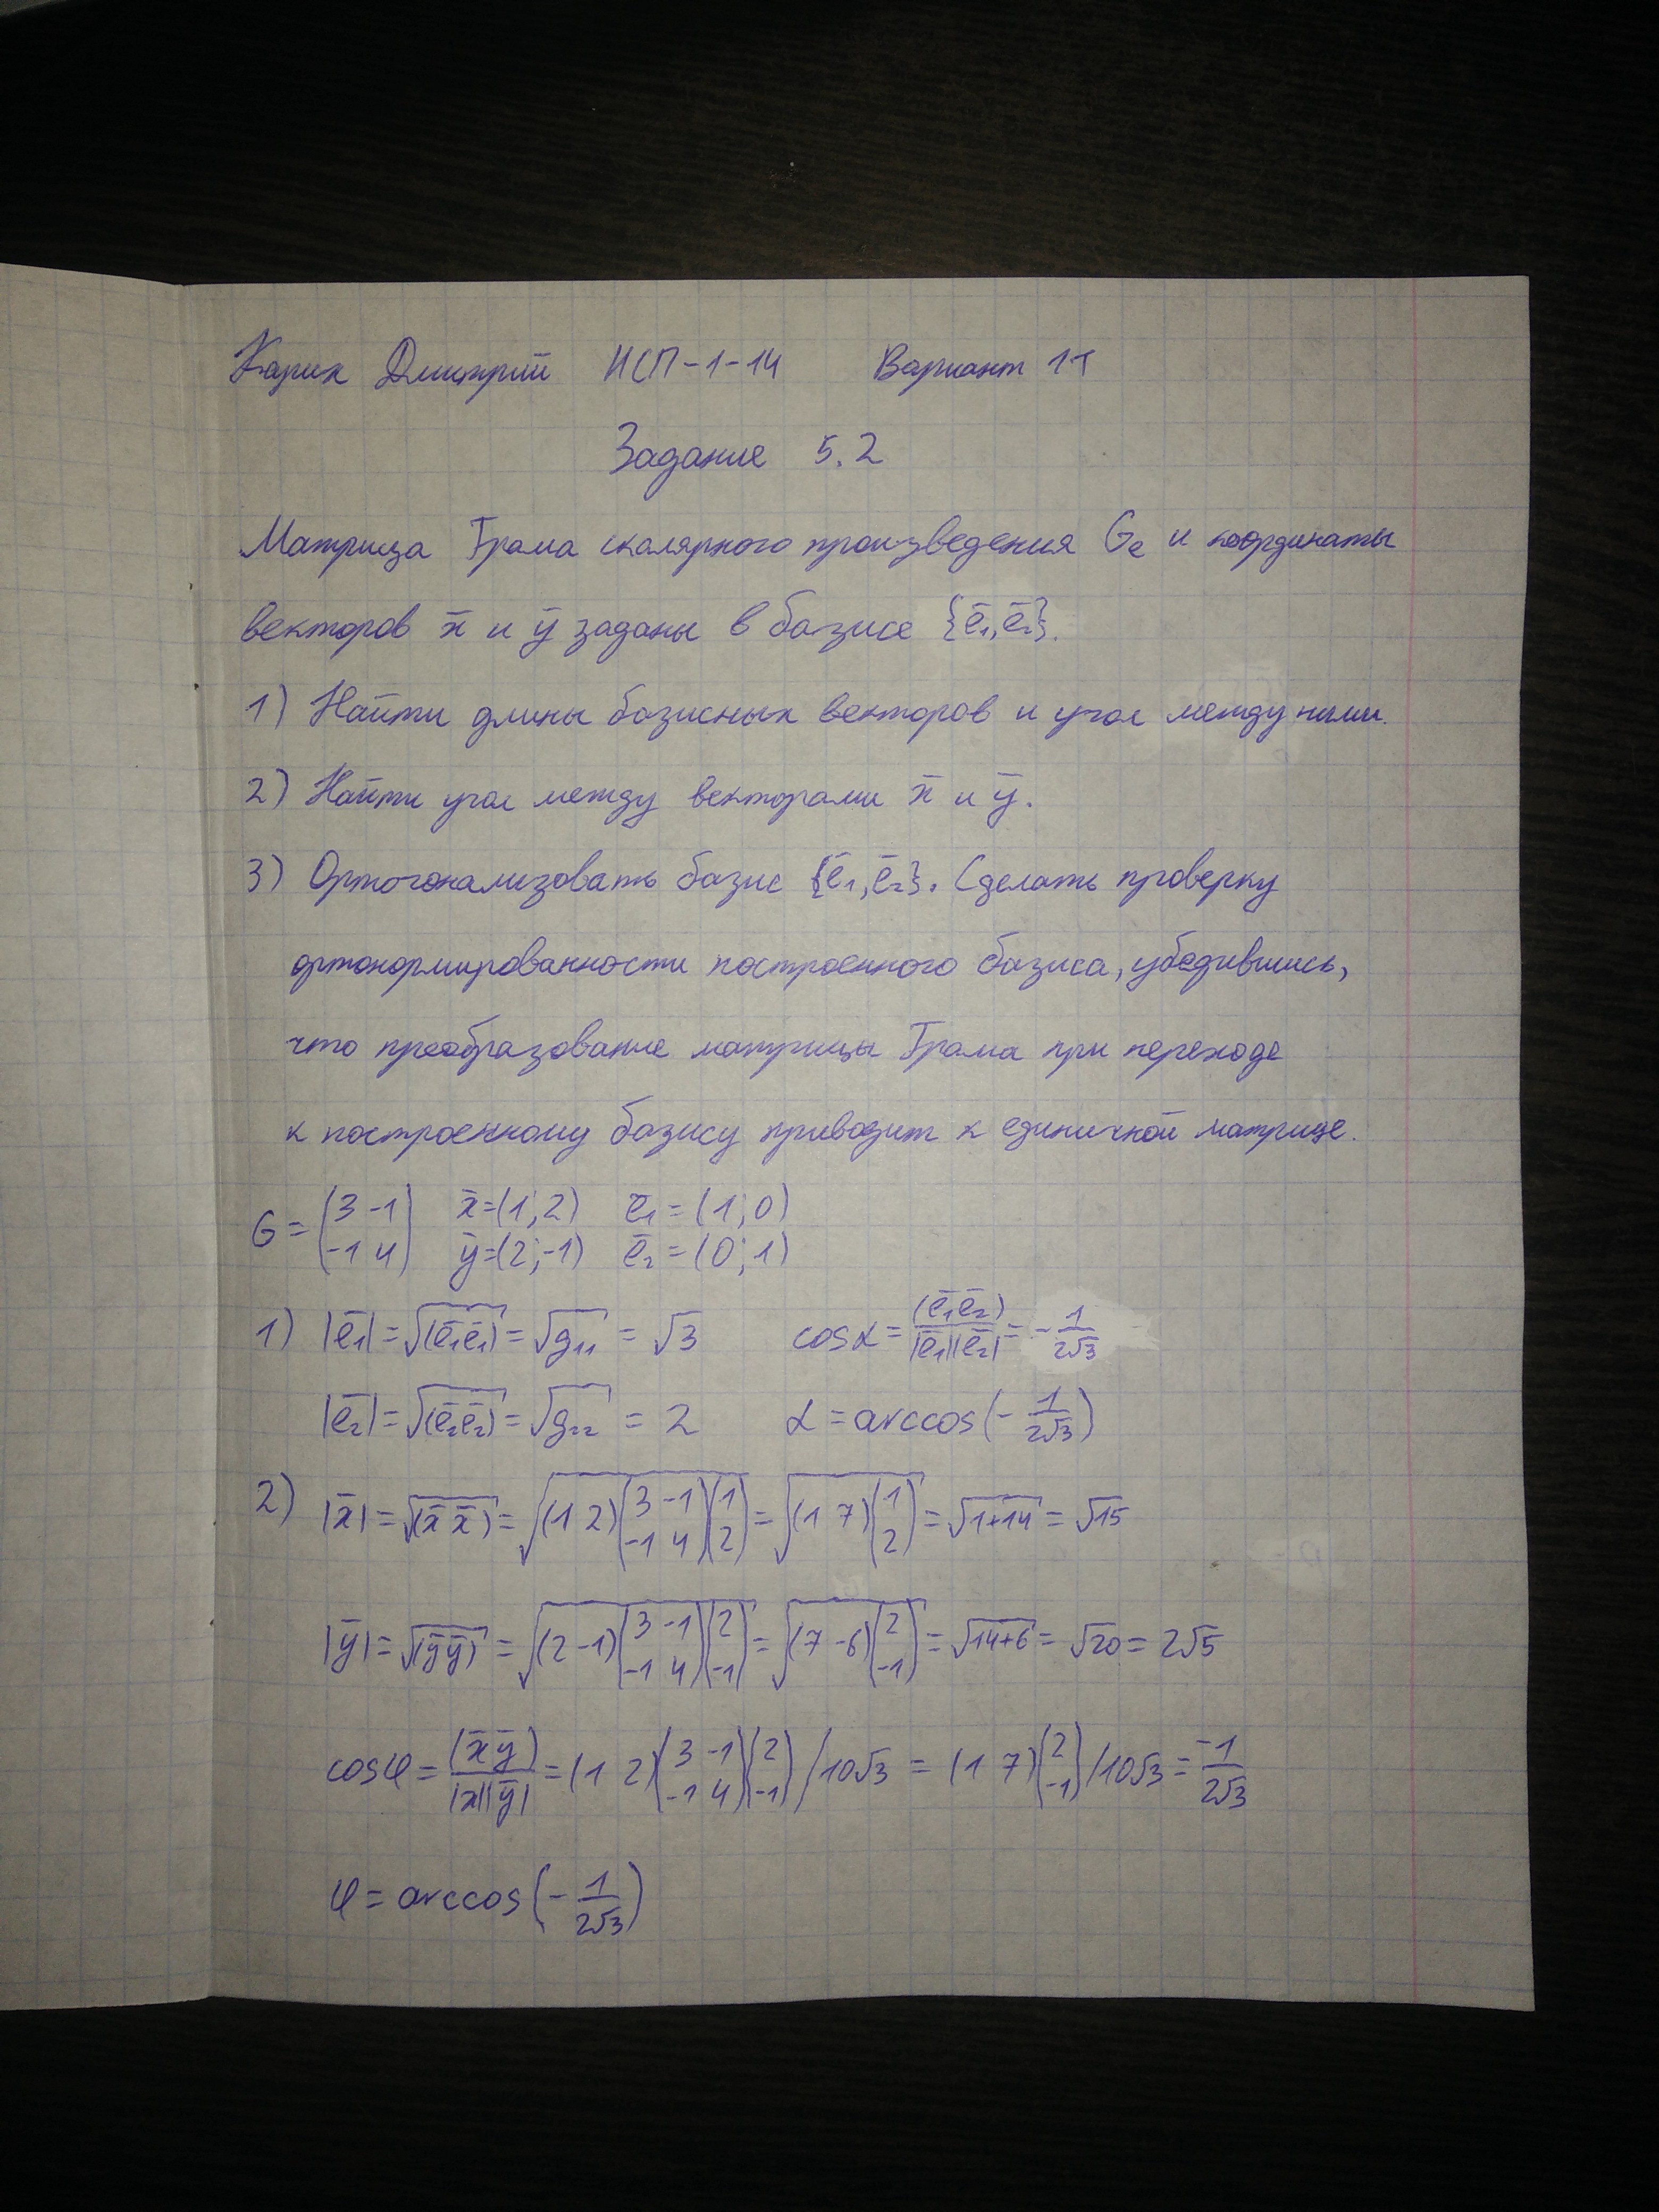 Карик Дмитрий ИСП-1-14 Вариант 17
Задание 5.2
Матрица Грама скалярного произведения Gₑ и координаты
векторов x̄ и ȳ заданы в базисе {ē₁,ē₂}.
1) Найти длины базисных векторов и угол между ними.
2) Найти угол между векторами x̄ и ȳ.
3) Ортогонализовать базис {ē₁,ē₂}. Сделать проверку
ортонормированности построенного базиса, убедившись,
что преобразование матрицы Грама при переходе
к построенному базису приводит к единичной матрице.
G = (3 -1; -1 4) x̄=(1;2) ē₁ = (1;0)
ȳ=(2;-1) ē₂ = (0;1)
1) |ē₁| = √(ē₁ē₁) = √g₁₁ = √3 cosα = (ē₁ē₂)/|ē₁||ē₂| = -1/2√3
|ē₂| = √(ē₂ē₂) = √g₂₂ = 2 α = arccos(-1/2√3)
2) |x̄| = √(x̄ x̄) = √(1 2)(3 -1; -1 4)(1; 2) = √(1 7)(1; 2) = √1+14 = √15
|ȳ| = √(ȳȳ) = √(2 -1)(3 -1; -1 4)(2; -1) = √(7 -6)(2; -1) = √14+6 = √20 = 2√5
cosφ = (x̄ȳ)/|x̄||ȳ| = (1 2)(3 -1; -1 4)(2; -1)/10√3 = (1 7)(2; -1)/10√3 = -1/2√3
φ = arccos(-1/2√3)